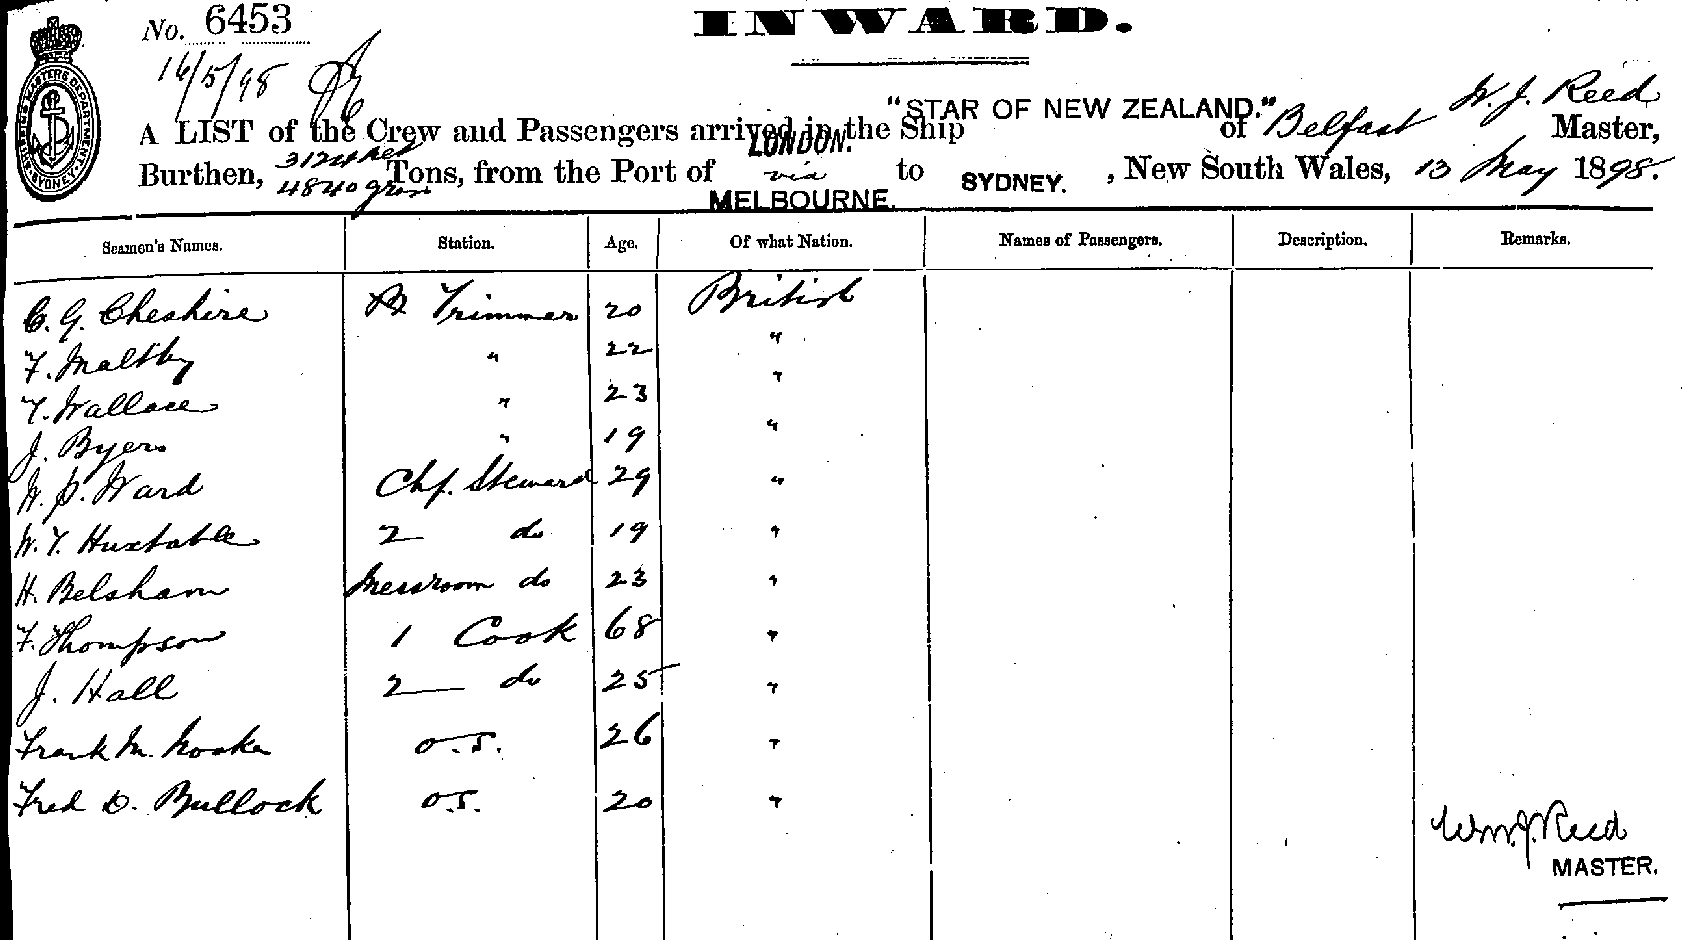 No. 6453
INWARD.
16/5/98
SHIPPING MASTERS DEPARTMENT SYDNEY
"STAR OF NEW ZEALAND." W. J. Reed
A LIST of the Crew and Passengers arrived in the Ship of Belfast Master,
LONDON.
Burthen, 3124 net Tons, from the Port of via to SYDNEY. , New South Wales, 13 May 1898.
4840 gross
MELBOURNE.
Seamen's Names. Station. Age. Of what Nation. Names of Passengers. Description. Remarks.
C. G. Cheshire Trimmer 20 British
F. Maltby " 22 "
T. Wallace " 23 "
J. Byers " 19 "
W. P. Ward Chf. Steward 29 "
W. T. Huxtable 2 do 19 "
H. Belsham Messroom do 23 "
F. Thompson 1 Cook 68 "
J. Hall 2 do 25 "
Frank M. 0.S. 26 "
Fred D. Bullock 0.S. 20 "
Wm. J. Reed
MASTER.